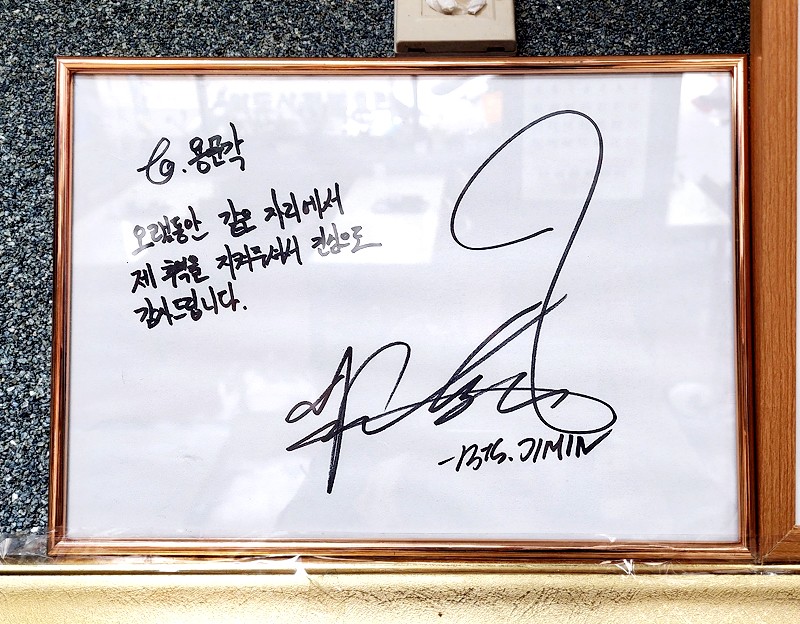 To. 용문각
오랫동안 같은 자리에서
제 추억을 지켜주셔서 진심으로
감사드립니다.
-BTS. JIMIN